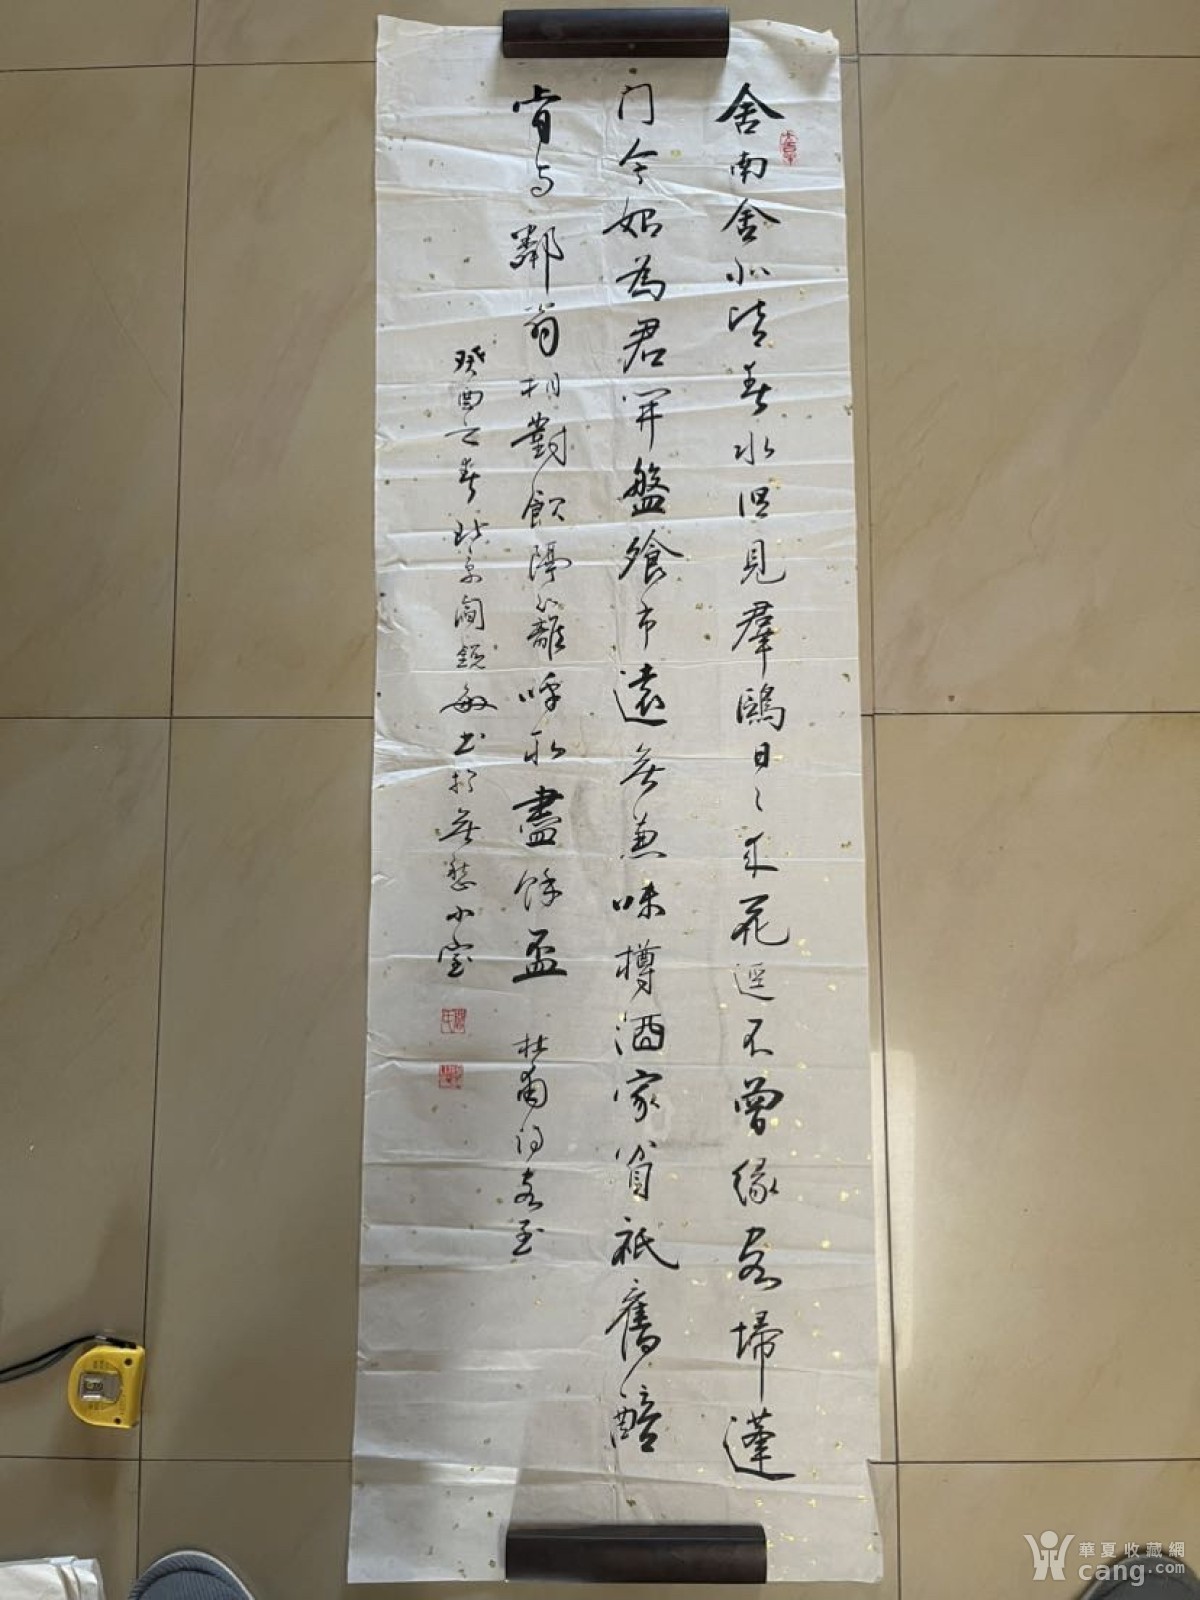 舍南舍北皆春水但見羣鷗日々来花逕不曾緣客掃蓬
门今始為君開盤飱市遠無兼味樽酒家貧祇舊醅
肯与鄰翁相對飲隔籬呼取盡餘盃 杜甫诗客至
癸酉之春北京閻銳敏书於無愁小室
華夏收藏網
cang.com